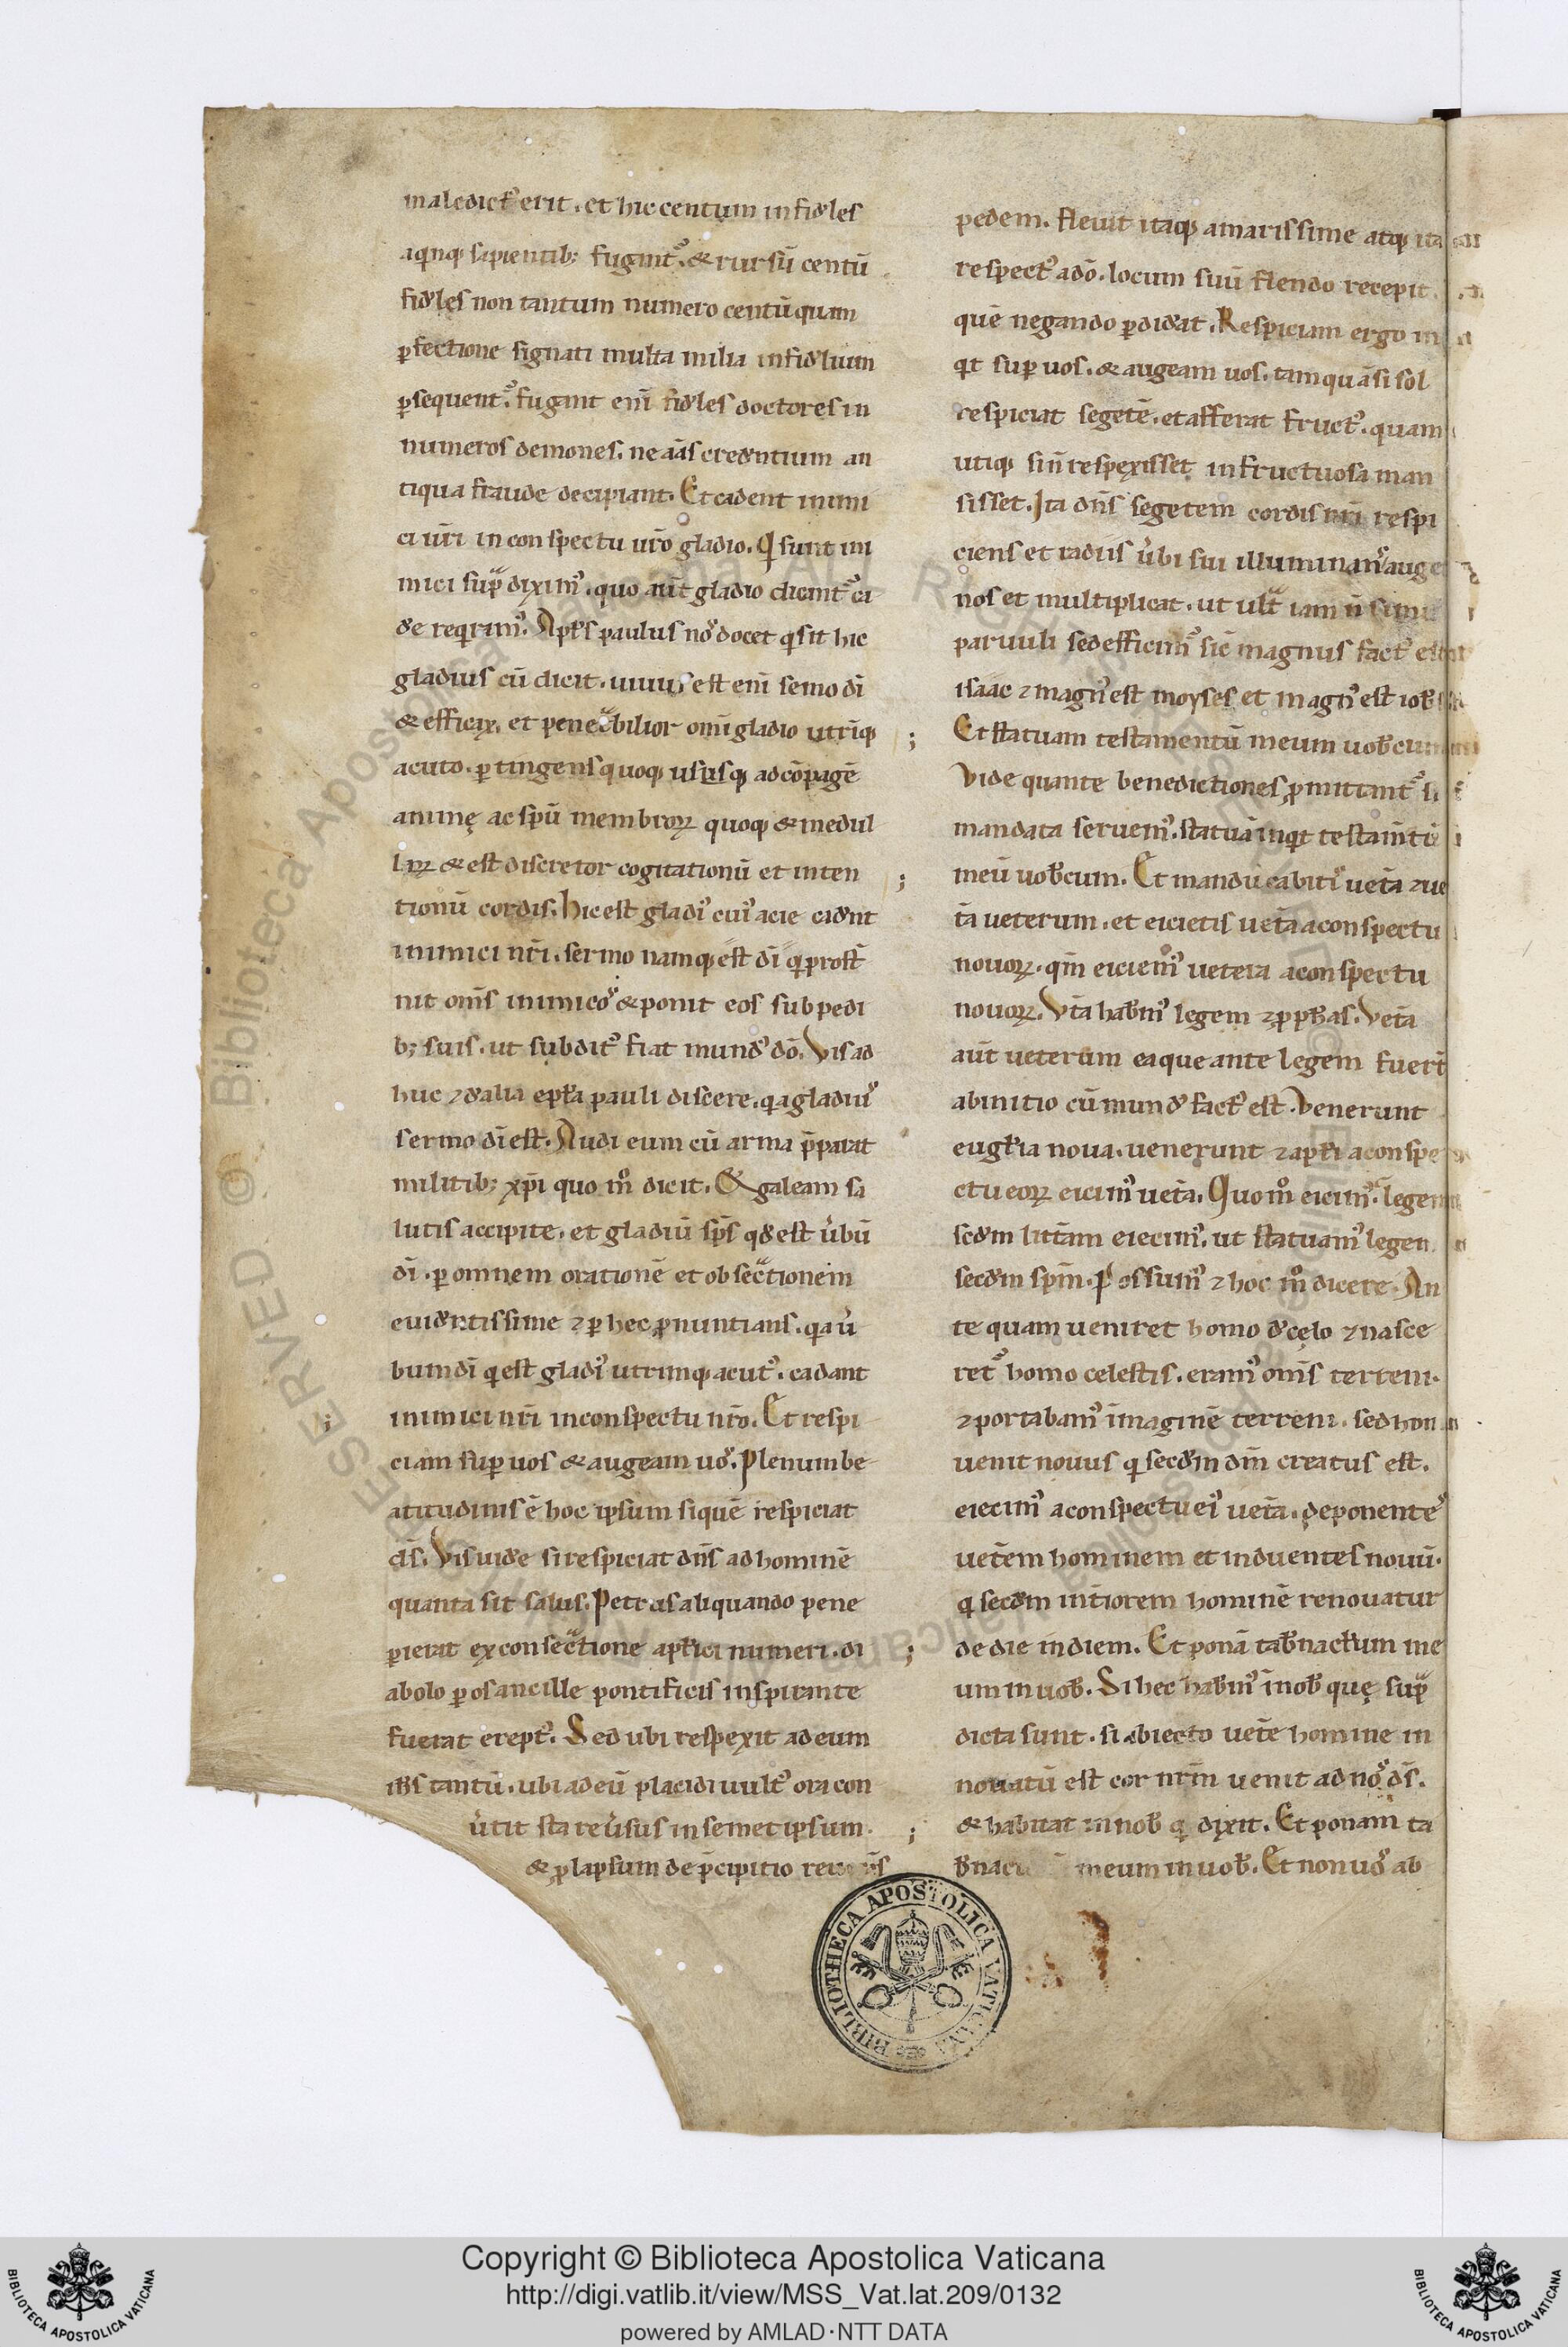 maledict᾽ erit. et hic centum infid̄les
aq̄nq; sapientib; fugant᷑. & rursū centū
fid̄les non tantum numero centū quam
p̄fectione signati multa milia infid̄lium
p̄sequent᷑. fugant enī fid̄les doctores in
numeros demones. ne aīas cred̄ntium an
tiqua fraude decipiant. Et cadent inimi
ci ur̄i in conspectu ur̄o gladio. Q̄ sunt ini
mici sup̄ dixim᾽. quo aut̄ gladio dicant᷑ ca
d̄e req̄rim᾽. Apl̄s paulus nō docet q̄ sit hic
gladius cū dicit. uiuus est enī sermo dī
& efficax. et penet̄bilior om̄i gladio utriq;
acuto. p̄tingens quoq; usq; ad cōpagē
animę ac spū membroꝝ quoq; & medul
laꝝ & est discretor cogitationū et inten
tionū cordis. hic est gladi᾽ cui᾽ acie cad̄nt
inimici nr̄i. sermo namq; est dī q̄ prost̄
nit om̄s inimicos & ponit eos sub pedi
b; suis. ut subdit᾽ fiat mund᾽ dō. Vis ad
huc ⁊ d̄ alia epl̄a pauli discere. q̄a gladius
sermo dī est. Audi eum cū arma p̄parat
militib; xp̄i quo m̊ dicit. & galeam sa
lutis accipite. et gladiū sp̄s qd̄ est ūbū
dī. p̄ omnem orationē et obsec̄tionem
euid̄ntissime ⁊ p̄ hec p̄nuntians. q̄a ū
bum dī q̄ est gladi᾽ utrimq; acut᾽. cadant
inimici nr̄i in conspectu nr̄o. Et respi
ciam sup̄ uos & augeam uos. Plenum be
atitudinis ē hoc ipsum si quē respiciat
dī̄s. Vis uid̄e si respiciat dn̄s ad hominē
quanta sit salus. Petrus aliquando pene
p̄ierat ex consec̄tione apl̄ici numeri. di
abolo p̄ os ancille pontificis inspirante
fuerat erept᾽. Sed ubi respexit ad eum
ih̄s tantū. ubi ad eū placidi uult᾽ ora con
ūtit sta reūsus in semet ipsum.
& p̄lapsum de p̄cipitio
pedem. fleuit itaq; amarissime atq; ita
respect᾽ a dō. locum suū flendo recepit.
quē negando p̄did̄at. Respiciam ergo in
q̄t sup̄ uos. & augeam uos. tamquā si sol
respiciat segetē. et afferat fruct᾽. quam
utiq; si n̄ respexisset infructuosa man
sisset. Ita dn̄s segetem cordis nr̄i respi
ciens et radiis ūbi sui illuminans auge
nos et multiplicat. ut ult̄ iam n̄ simus
paruuli sed efficim᷑ sic̄ magnus fact᾽ est
isaac ⁊ magn᾽ est moyses et magn᾽ est ioh̄s
Et statuam testamentū meum uob̄cum
Vide quante benedictiones p̄mittant᷑ si
mandata seruem᾽. statuā inq̄t testam̄tū
meū uob̄cum. Et manducabitis uet̄a ⁊ ue
t̄a ueterum. et eicietis uet̄a a conspectu
nouoꝝ. qm̄ eiciem᾽ uetera a conspectu
nouoꝝ. Vet̄a hab̄m᾽ legem ⁊ pp̄h̄as. Vet̄a
aut̄ ueterum ea que ante legem fuer̄t
ab initio cū mund᾽ fact᾽ est. Venerunt
eugl̄ia noua. uenerunt ⁊ apl̄i a conspe
ctu eoꝝ eicim᾽ uet̄a. Quo m̊ eicim᾽. legem
scd̄m litt̄am eiecim᾽. ut statuam᾽ legem
secd̄m spm̄. Possum᾽ ⁊ hoc m̊ dicere. An
te quam ueniret homo d̄ cęlo ⁊ nasce
ret᷑ homo celestis. eram᾽ om̄s terreni.
⁊ portabam᾽ imaginē terreni. sed hom
uenit nouus q̄ secd̄m dm̄ creatus est.
eiecim᾽ a conspectu ei᾽ uet̄a. deponentes
uet̄em hominem et induentes nouū.
q̄ secd̄m int̄iorem hominē renouatur
de die in diem. Et ponā tab̄nacl̄um me
um in uob̄. Si hec hab̄m᾽ in ob̄ quę sup̄
dicta sunt. si abiecto uet̄e homine in
nouatū est cor nr̄m uenit ad nos ds̄.
& habitat in nob̄ q̄ dixit. Et ponam ta
b̄nac meum in uob̄. Et non uos ab
BIBLIOTHECA APOSTOLICA VATICANA
© Biblioteca Apostolica Vaticana ALL RIGHTS RESERVED
Copyright © Biblioteca Apostolica Vaticana
http://digi.vatlib.it/view/MSS_Vat.lat.209/0132
powered by AMLAD·NTT DATA
BIBLIOTECA APOSTOLICA VATICANA
BIBLIOTECA APOSTOLICA VATICANA